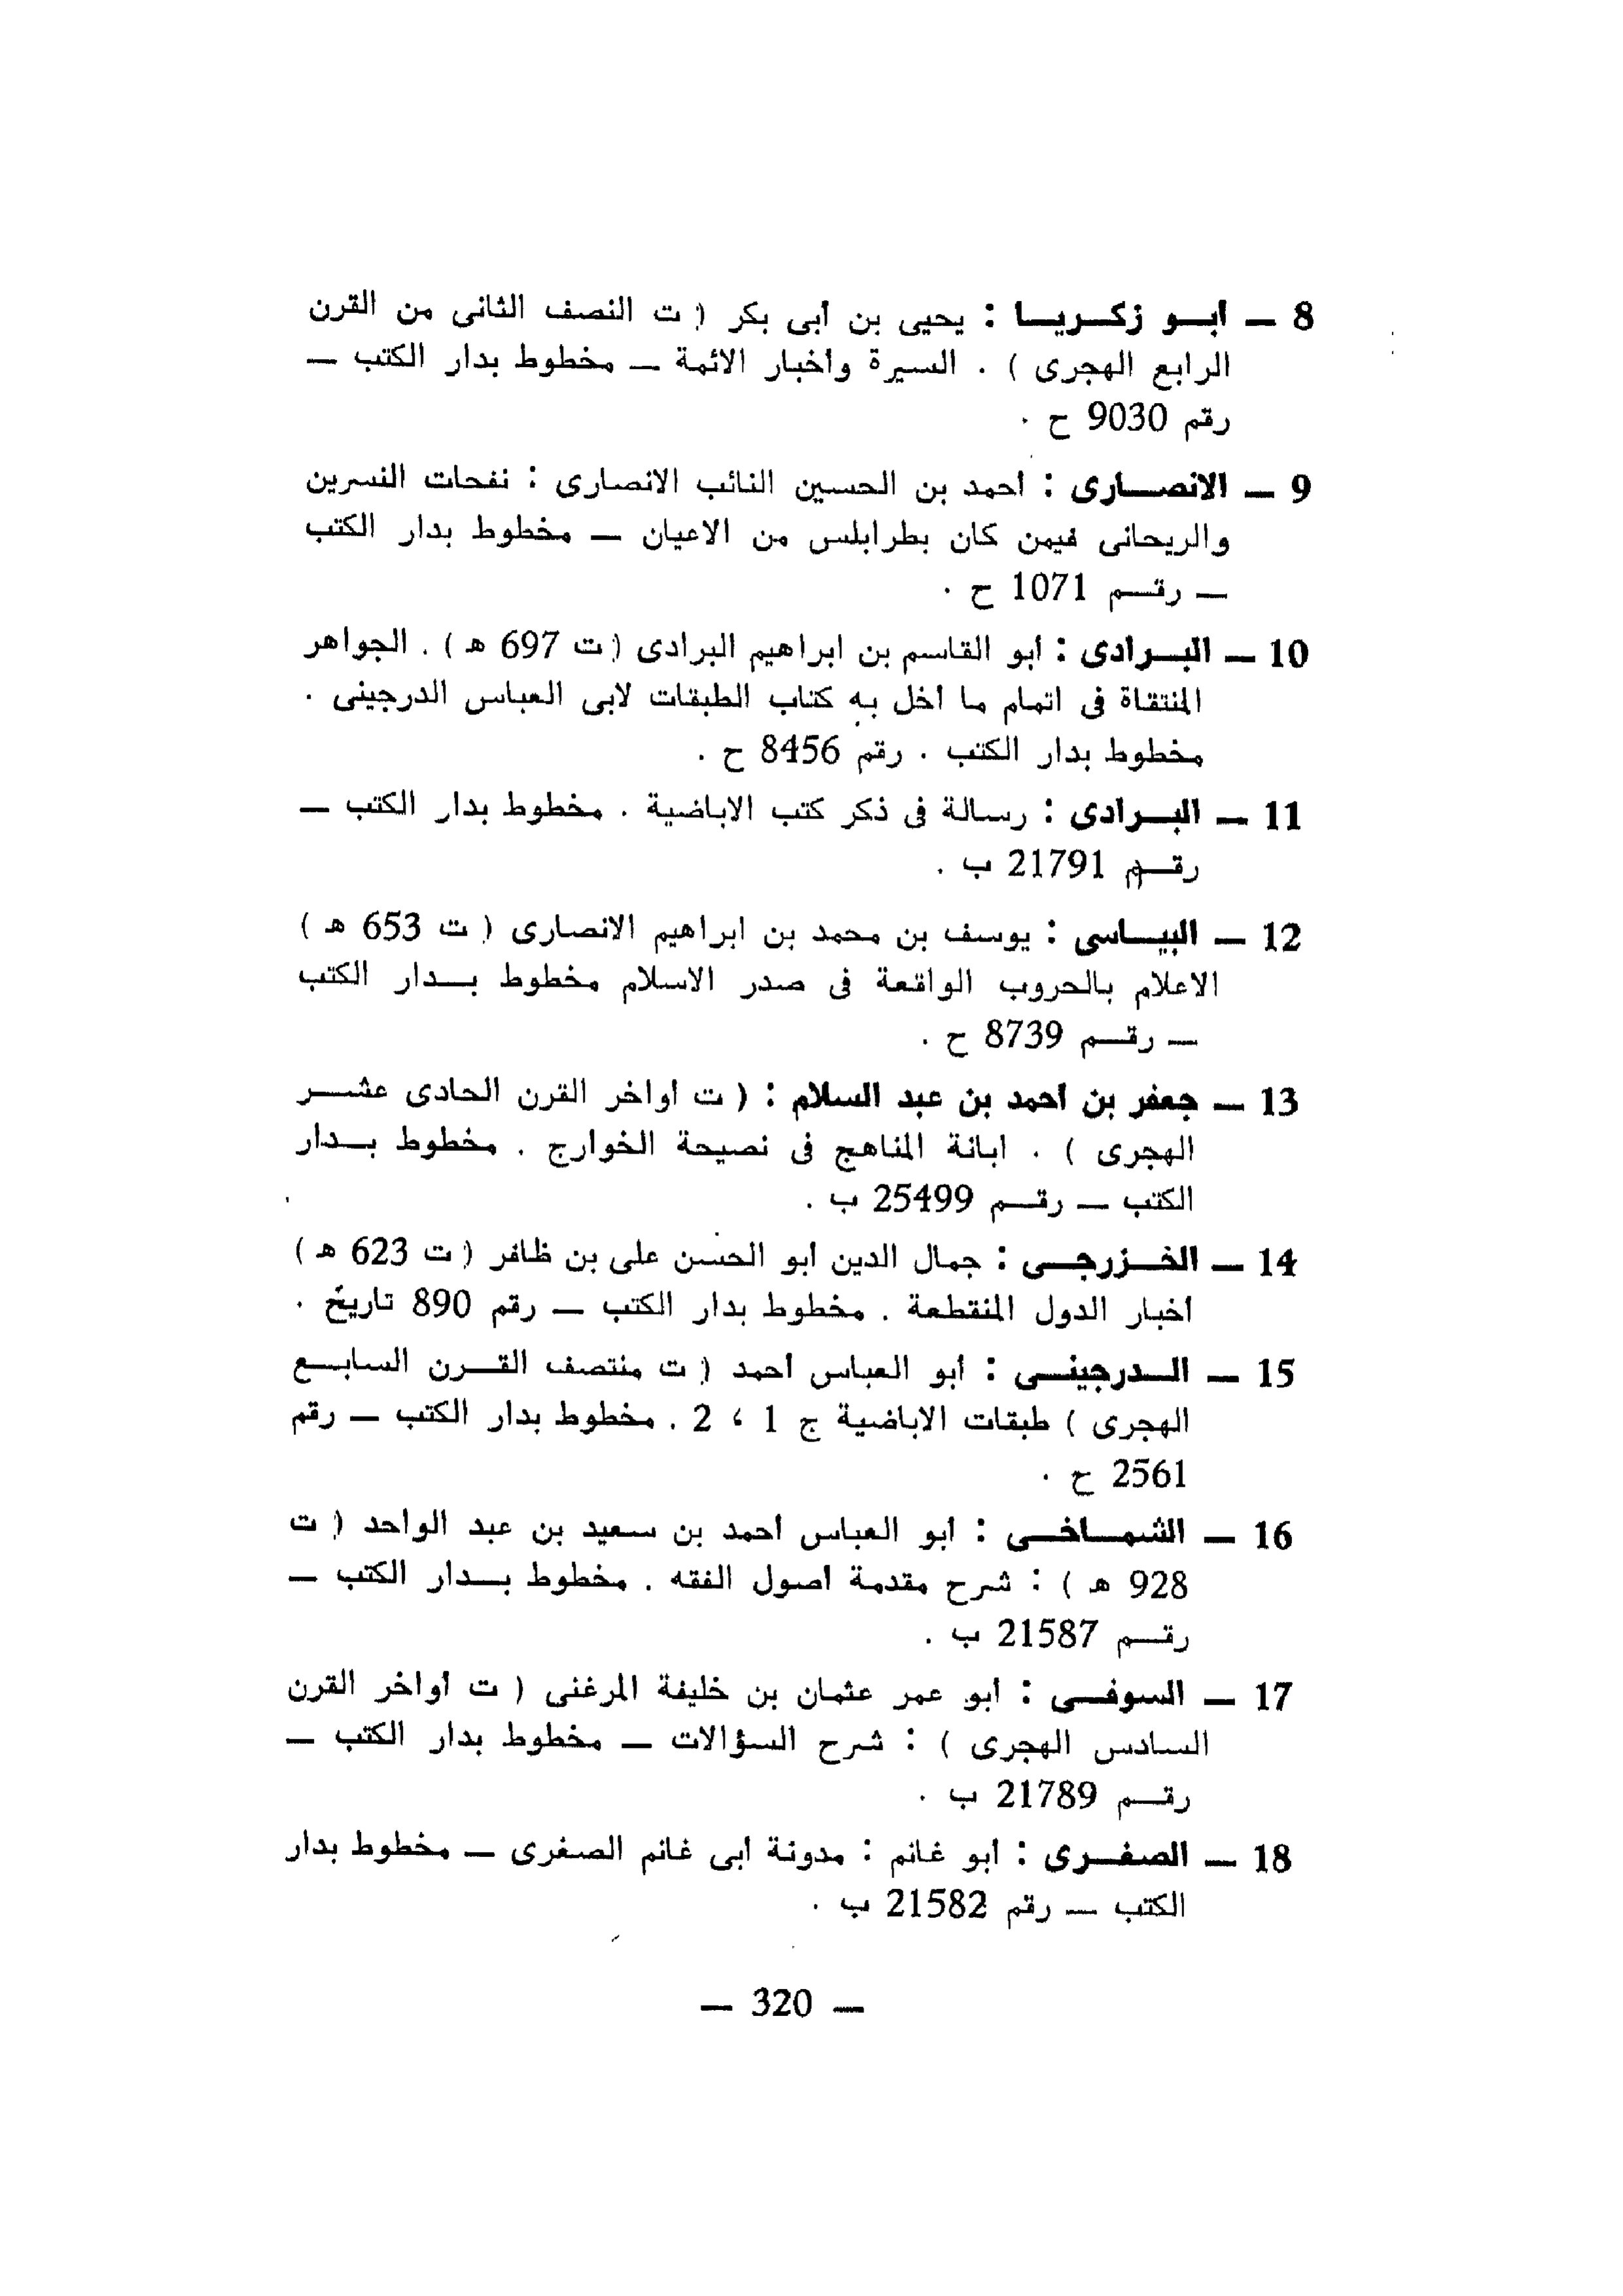 8 — ابو زكريا : يحيى بن أبى بكر ( ت النصف الثانى من القرن
الرابع الهجرى ) . السيرة واخبار الائمة — مخطوط بدار الكتب —
رقم 9030 ح .
9 — الانصارى : احمد بن الحسين النائب الانصارى : نفحات النسرين
والريحانى فيمن كان بطرابلس من الاعيان — مخطوط بدار الكتب
— رقم 1071 ح .
10 — البرادى : ابو القاسم بن ابراهيم البرادى ( ت 697 ه ) . الجواهر
المنتقاة فى اتمام ما اخل به كتاب الطبقات لابى العباس الدرجينى .
مخطوط بدار الكتب . رقم 8456 ح .
11 — البرادى : رسالة فى ذكر كتب الاباضية . مخطوط بدار الكتب —
رقم 21791 ب .
12 — البياسى : يوسف بن محمد بن ابراهيم الانصارى ( ت 653 ه )
الاعلام بالحروب الواقعة فى صدر الاسلام مخطوط بدار الكتب
— رقم 8739 ح .
13 — جعفر بن احمد بن عبد السلام : ( ت اواخر القرن الحادى عشر
الهجرى ) . ابانة المناهج فى نصيحة الخوارج . مخطوط بدار
الكتب — رقم 25499 ب .
14 — الخزرجى : جمال الدين ابو الحسن على بن ظافر ( ت 623 ه )
اخبار الدول المنقطعة . مخطوط بدار الكتب — رقم 890 تاريخ .
15 — الدرجينى : أبو العباس احمد ( ت منتصف القرن السابع
الهجرى ) طبقات الاباضية ج 1 ، 2 . مخطوط بدار الكتب — رقم
2561 ح .
16 — الشماخى : ابو العباس احمد بن سعيد بن عبد الواحد ( ت
928 ه ) : شرح مقدمة اصول الفقه . مخطوط بدار الكتب —
رقم 21587 ب .
17 — السوفى : ابو عمر عثمان بن خليفة المرغنى ( ت أواخر القرن
السادس الهجرى ) : شرح السؤالات — مخطوط بدار الكتب —
رقم 21789 ب .
18 — الصفرى : أبو غانم : مدونة ابى غانم الصغرى — مخطوط بدار
الكتب — رقم 21582 ب .
— 320 —